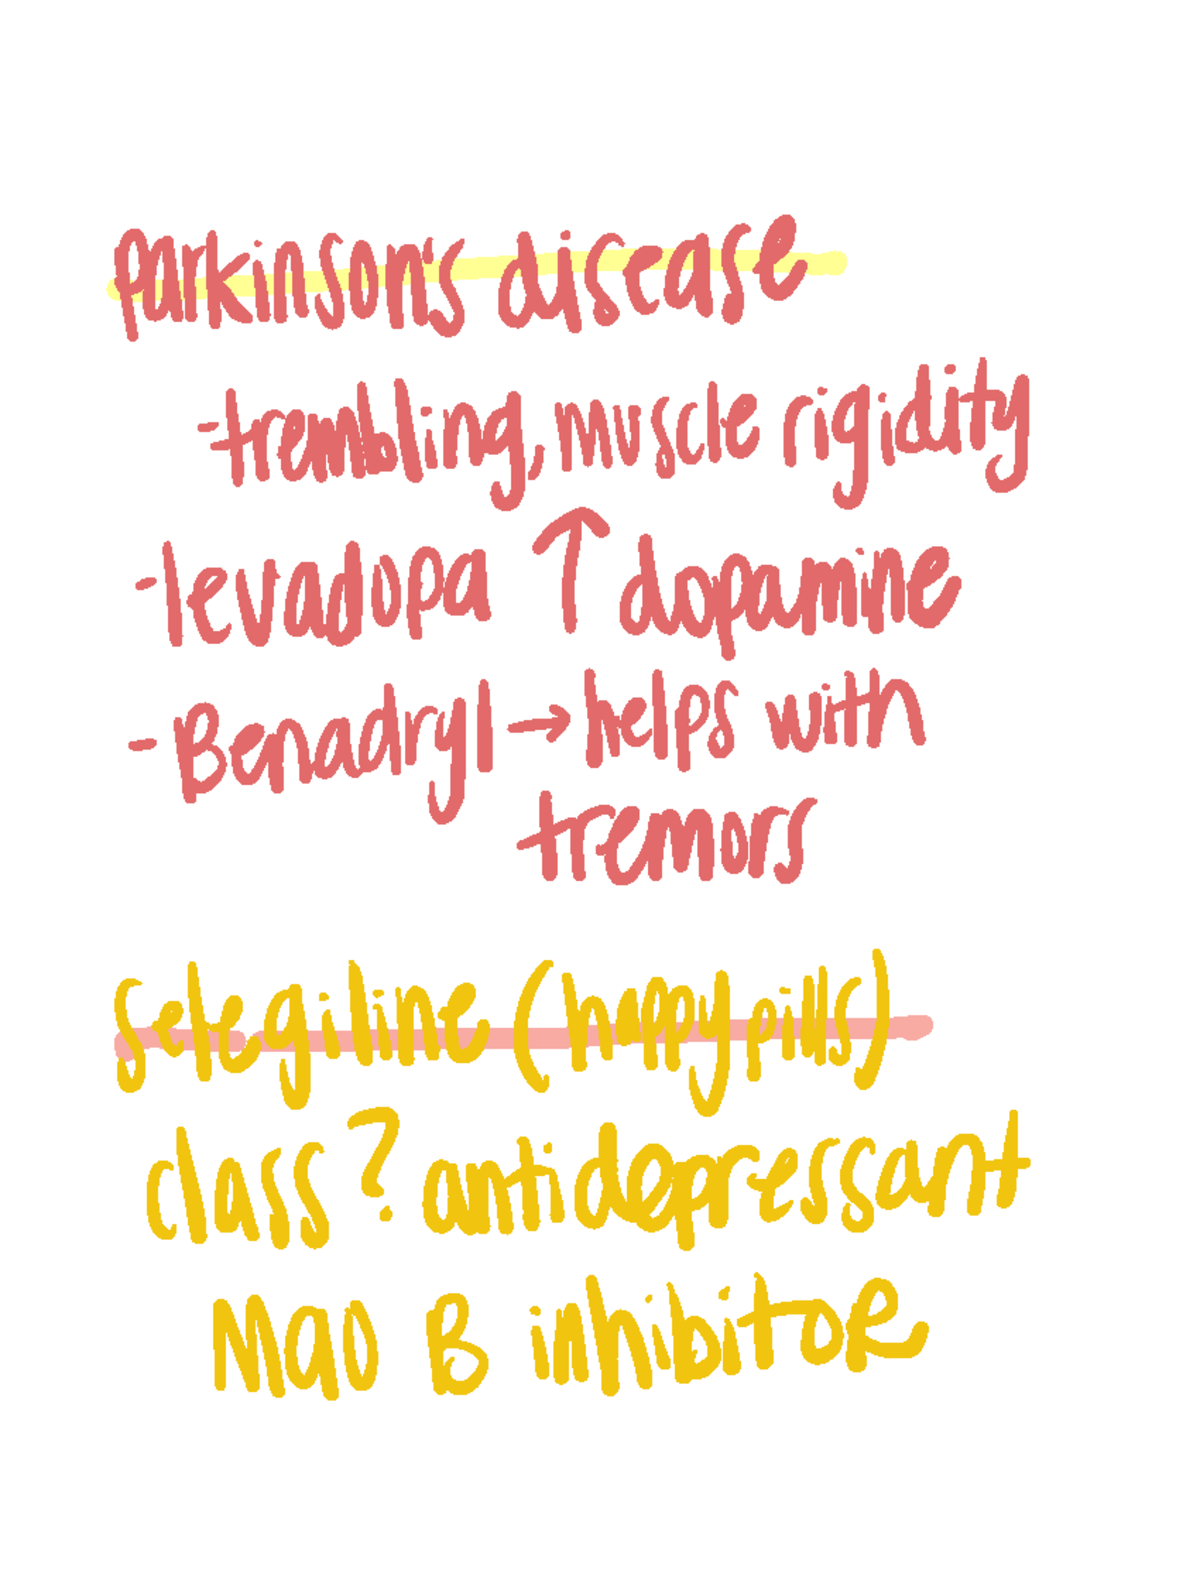 parkinson's disease
-trembling, muscle rigidity
-levadopa ↑ dopamine
-Benadryl → helps with
tremors
selegiline (happy pills)
class? antidepressant
Mao B inhibitor